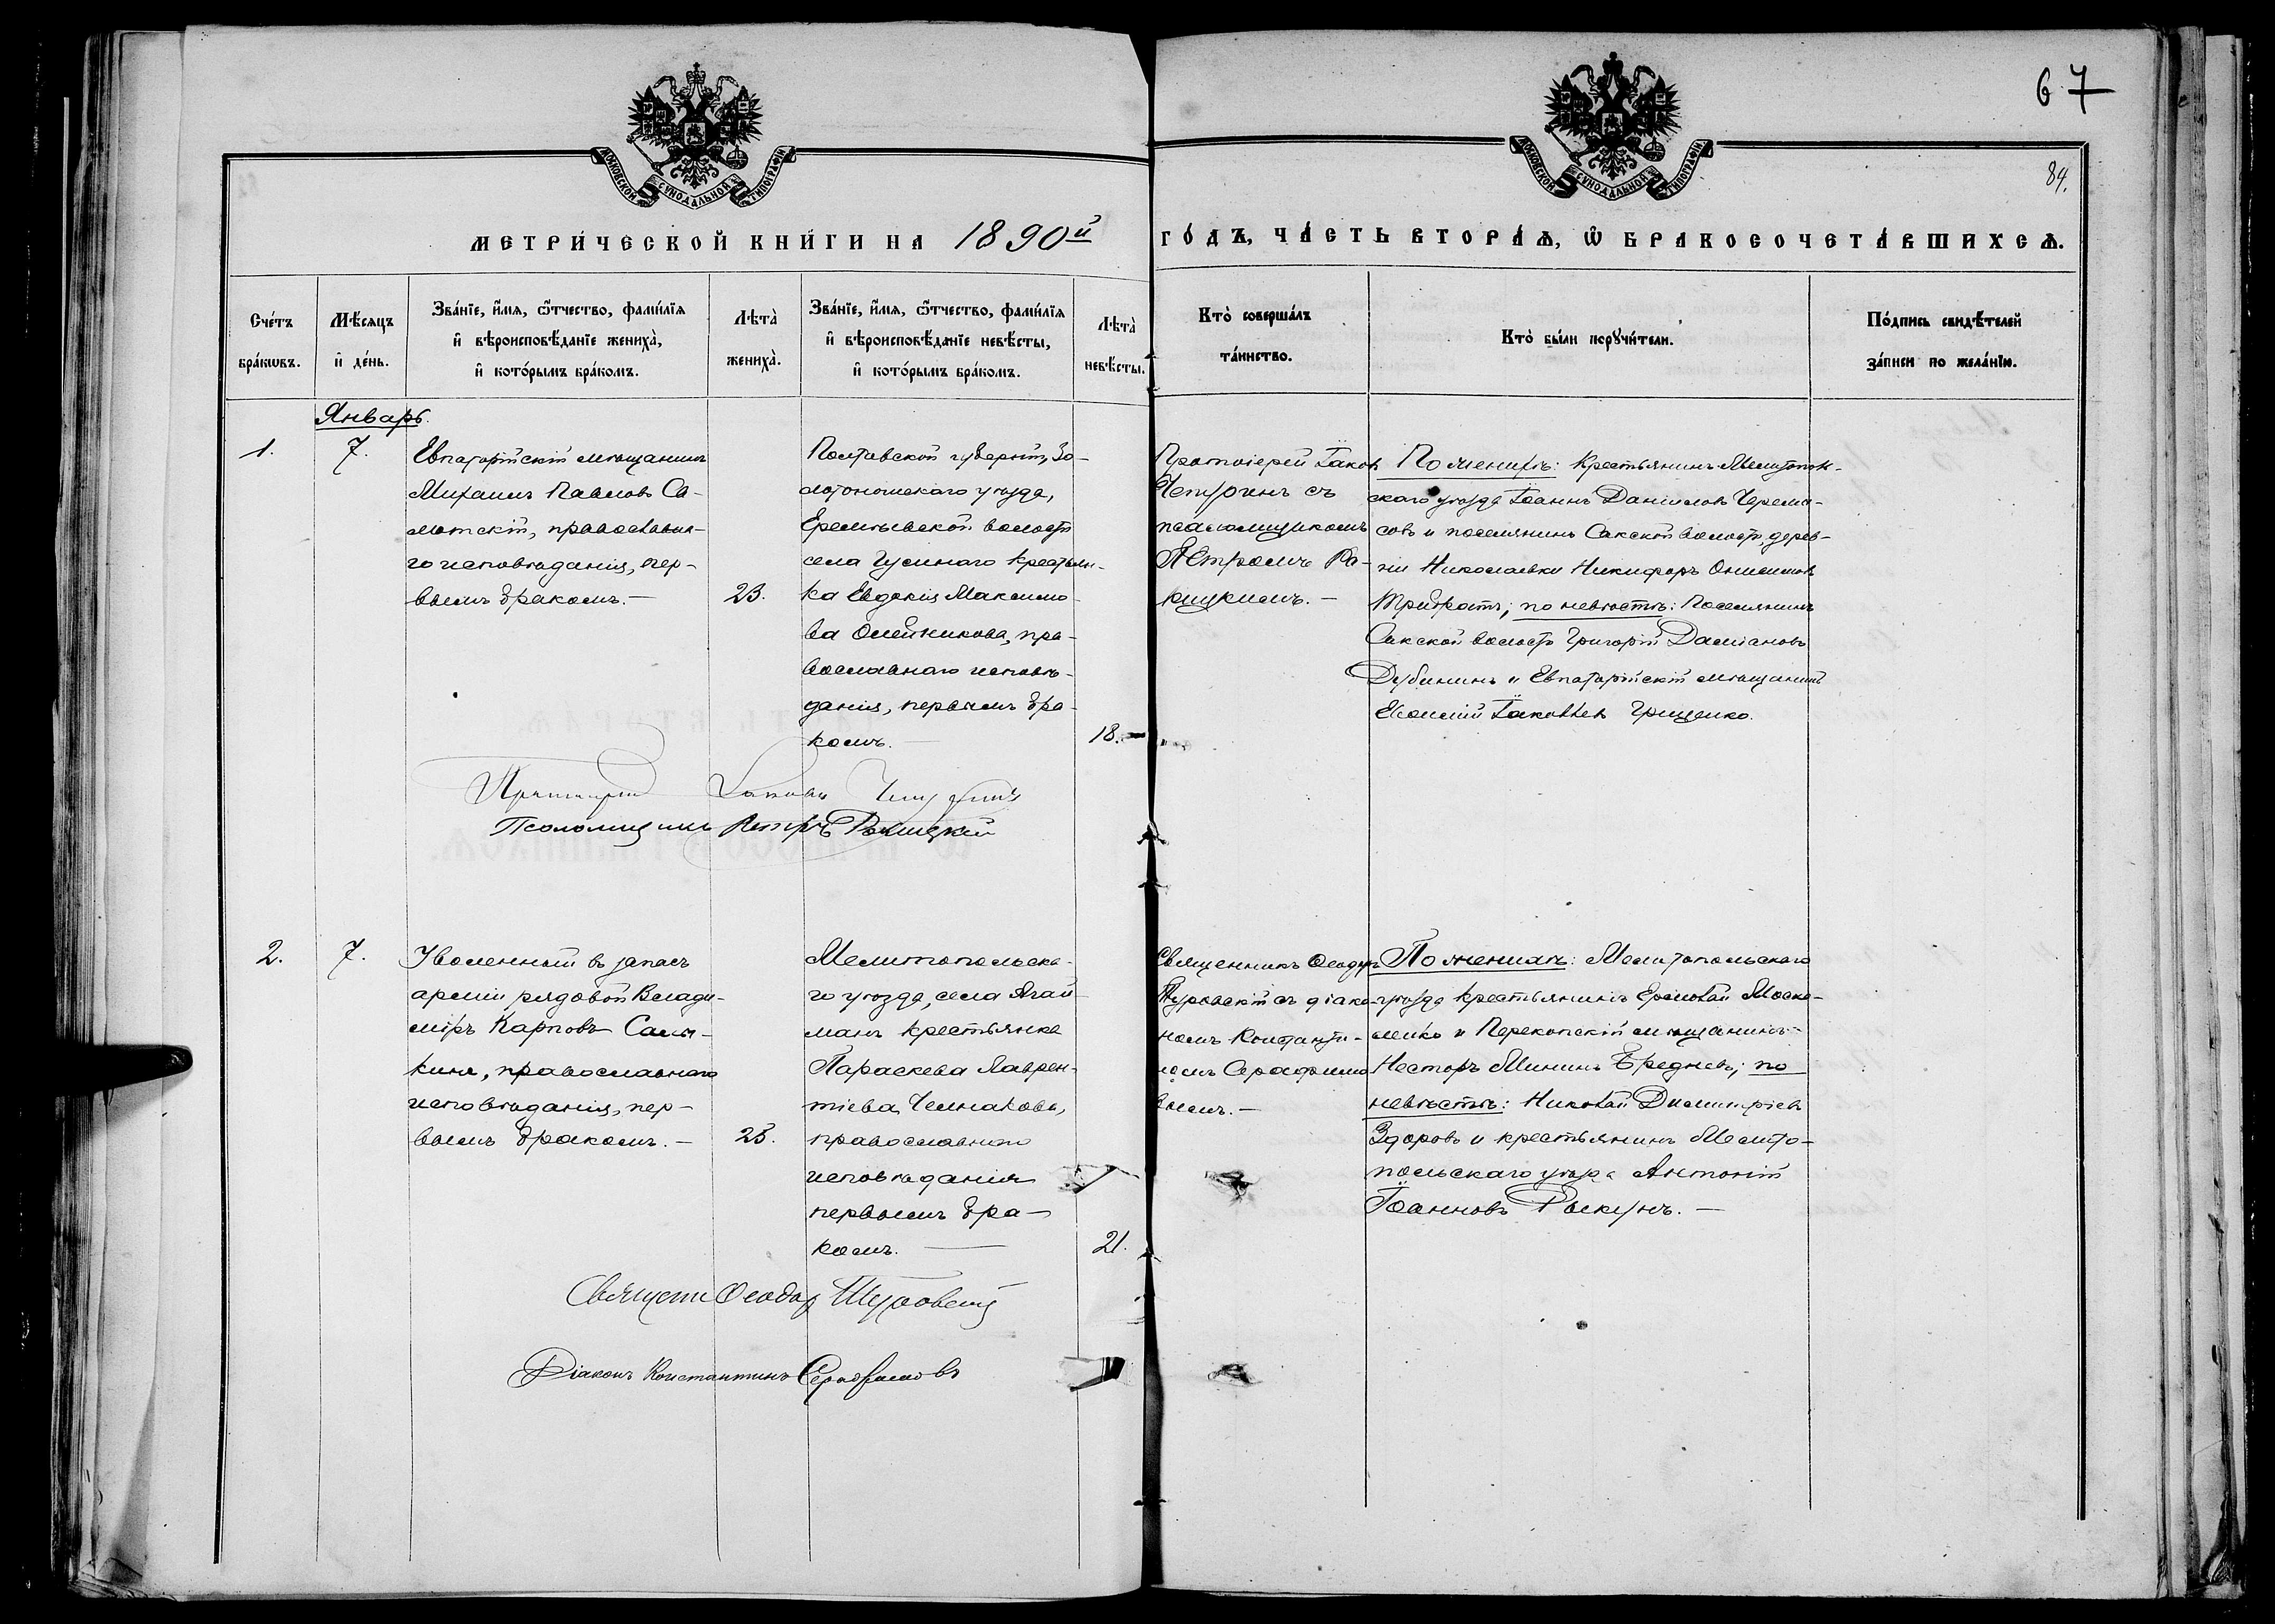 67
84.
МОСКОВСКОЙ СУНОДАЛЬНОЙ ТИПОГРАФІИ
МОСКОВСКОЙ СУНОДАЛЬНОЙ ТИПОГРАФІИ
МЕТРИ́ЧЕСКОЙ КНИ́ГИ НА 1890й ГО́ДЪ, ЧА́СТЬ ВТОРА́Ѧ, Ѽ БРАКОСОЧЕТА́ВШИХСѦ.
Сче́тъ
бра́кѡвъ.
Мѣ́сяцъ
и҆ де́нь.
Зва́нїе, и҆́мѧ, ѻ҆́тчество, фами́лїѧ
и҆ вѣроисповѣ́данїе жениха̀,
и҆ кото́рымъ бра́комъ.
Лѣта̀
жениха̀.
Зва́нїе, и҆́мѧ, ѻ҆́тчество, фами́лїѧ
и҆ вѣроисповѣ́данїе невѣ́сты,
и҆ кото́рымъ бра́комъ.
Лѣта̀
невѣ́сты.
Кто̀ соверша́лъ
та́инство.
Кто̀ бы́ли порꙋчи́тели.
По́дпись свидѣ́телей
за́писи по жела́нїю.
Январь.
1.
7.
Евпаторійскій мѣщанинъ
Михаилъ Павловъ Са-
матскій, православна-
го исповѣданія, пер-
вымъ бракомъ. —
23.
Полтавской губерніи, Зо-
лотоношскаго уѣзда,
Еремѣевской волости
села Гусинаго крестьян-
ка Евдокія Максимо-
ва Олейникова, пра-
вославнаго исповѣ-
данія, первымъ бра-
комъ. —
18. —
Протоіерей Іаковъ
Чепуринъ съ
псаломщикомъ
Петромъ Ра-
кицкимъ. —
По женихѣ: крестьянинъ Мелитополь-
скаго уѣзда Іоаннъ Даниловъ Черема-
совъ и поселянинъ Сакской волости, дерев-
ни Николаевки Никифоръ Онисимовъ
Трибратъ; по невѣстѣ: Поселянинъ
Сакской волости Григорій Даміановъ
Дубининъ и Евпаторійскій мѣщанинъ
Іаковлевъ Грищенко.
Протоіерей Іаковъ Чепуринъ
Псаломщикъ Петръ Ракицкій
2.
7.
Уволенный въ запасъ
арміи рядовой Влади-
міръ Карповъ Салы-
кинъ, православнаго
исповѣданія, пер-
вымъ бракомъ. —
25.
Мелитопольска-
го уѣзда, села Агай-
манъ крестьянка
Параскева Лаврен-
тіева Челнакова,
православнаго
исповѣданія
первымъ бра-
комъ. —
21.
Священникъ Ѳеодоръ
Шуровскій съ діако-
номъ Константи-
номъ Серафимо-
вымъ. —
По женихѣ: Мелитопольскаго
уѣзда крестьянинъ Ермолай Моска-
ленко и Перекопскій мѣщанинъ
Несторъ Мининъ Бредневъ; по
невѣстѣ: Николай Димитріевъ
Здоровъ и крестьянинъ Мелито-
польскаго уѣзда Антоній
Іоанновъ Рыкунъ. —
Священ Ѳеодор Шуровскій
Діаконъ Константинъ Серафимовъ